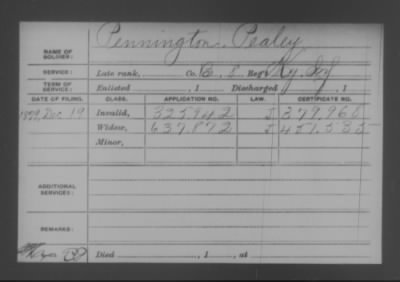 Pennington, Pealey
NAME OF SOLDIER:
SERVICE: Late rank, Co. B, 8 Reg't Ky. Inf
TERM OF SERVICE: Enlisted , 1 Discharged , 1
DATE OF FILING. CLASS. APPLICATION NO. LAW. CERTIFICATE NO.
1879, Dec. 19 Invalid, 325942 J 379,960
Widow, 637,872 J 451,585
Minor,
ADDITIONAL SERVICES:
REMARKS:
Died , 1 , at